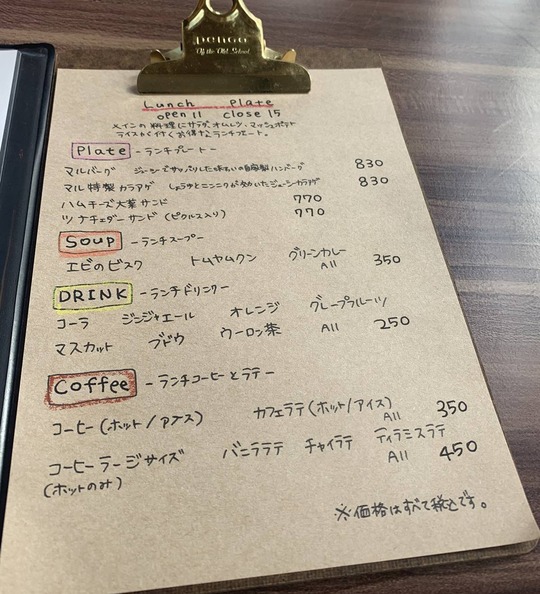 penco
Lunch Plate
open 11 close 15
メインの料理にサラダ、オムレツ、マッシュポテト
ライスが付くお得なランチプレート。
Plate -ランチプレート-
マルバーグ ジューシーでサッパリした味わいの自家製ハンバーグ 830
マル特製カラアゲ しょうゆとニンニクが効いたジューシーカラアゲ 830
ハムチーズ大葉サンド 770
ツナチェダーサンド(ピクルス入り) 770
Soup -ランチスープ-
エビのビスク トムヤムクン グリーンカレー
All 350
DRINK -ランチドリンク-
コーラ ジンジャエール オレンジ グレープフルーツ
マスカット ブドウ ウーロン茶 All 250
Coffee -ランチコーヒーとラテ-
コーヒー(ホット/アイス) カフェラテ(ホット/アイス)
All 350
コーヒーラージサイズ バニララテ チャイラテ ティラミスラテ
(ホットのみ) All 450
※価格はすべて税込です。